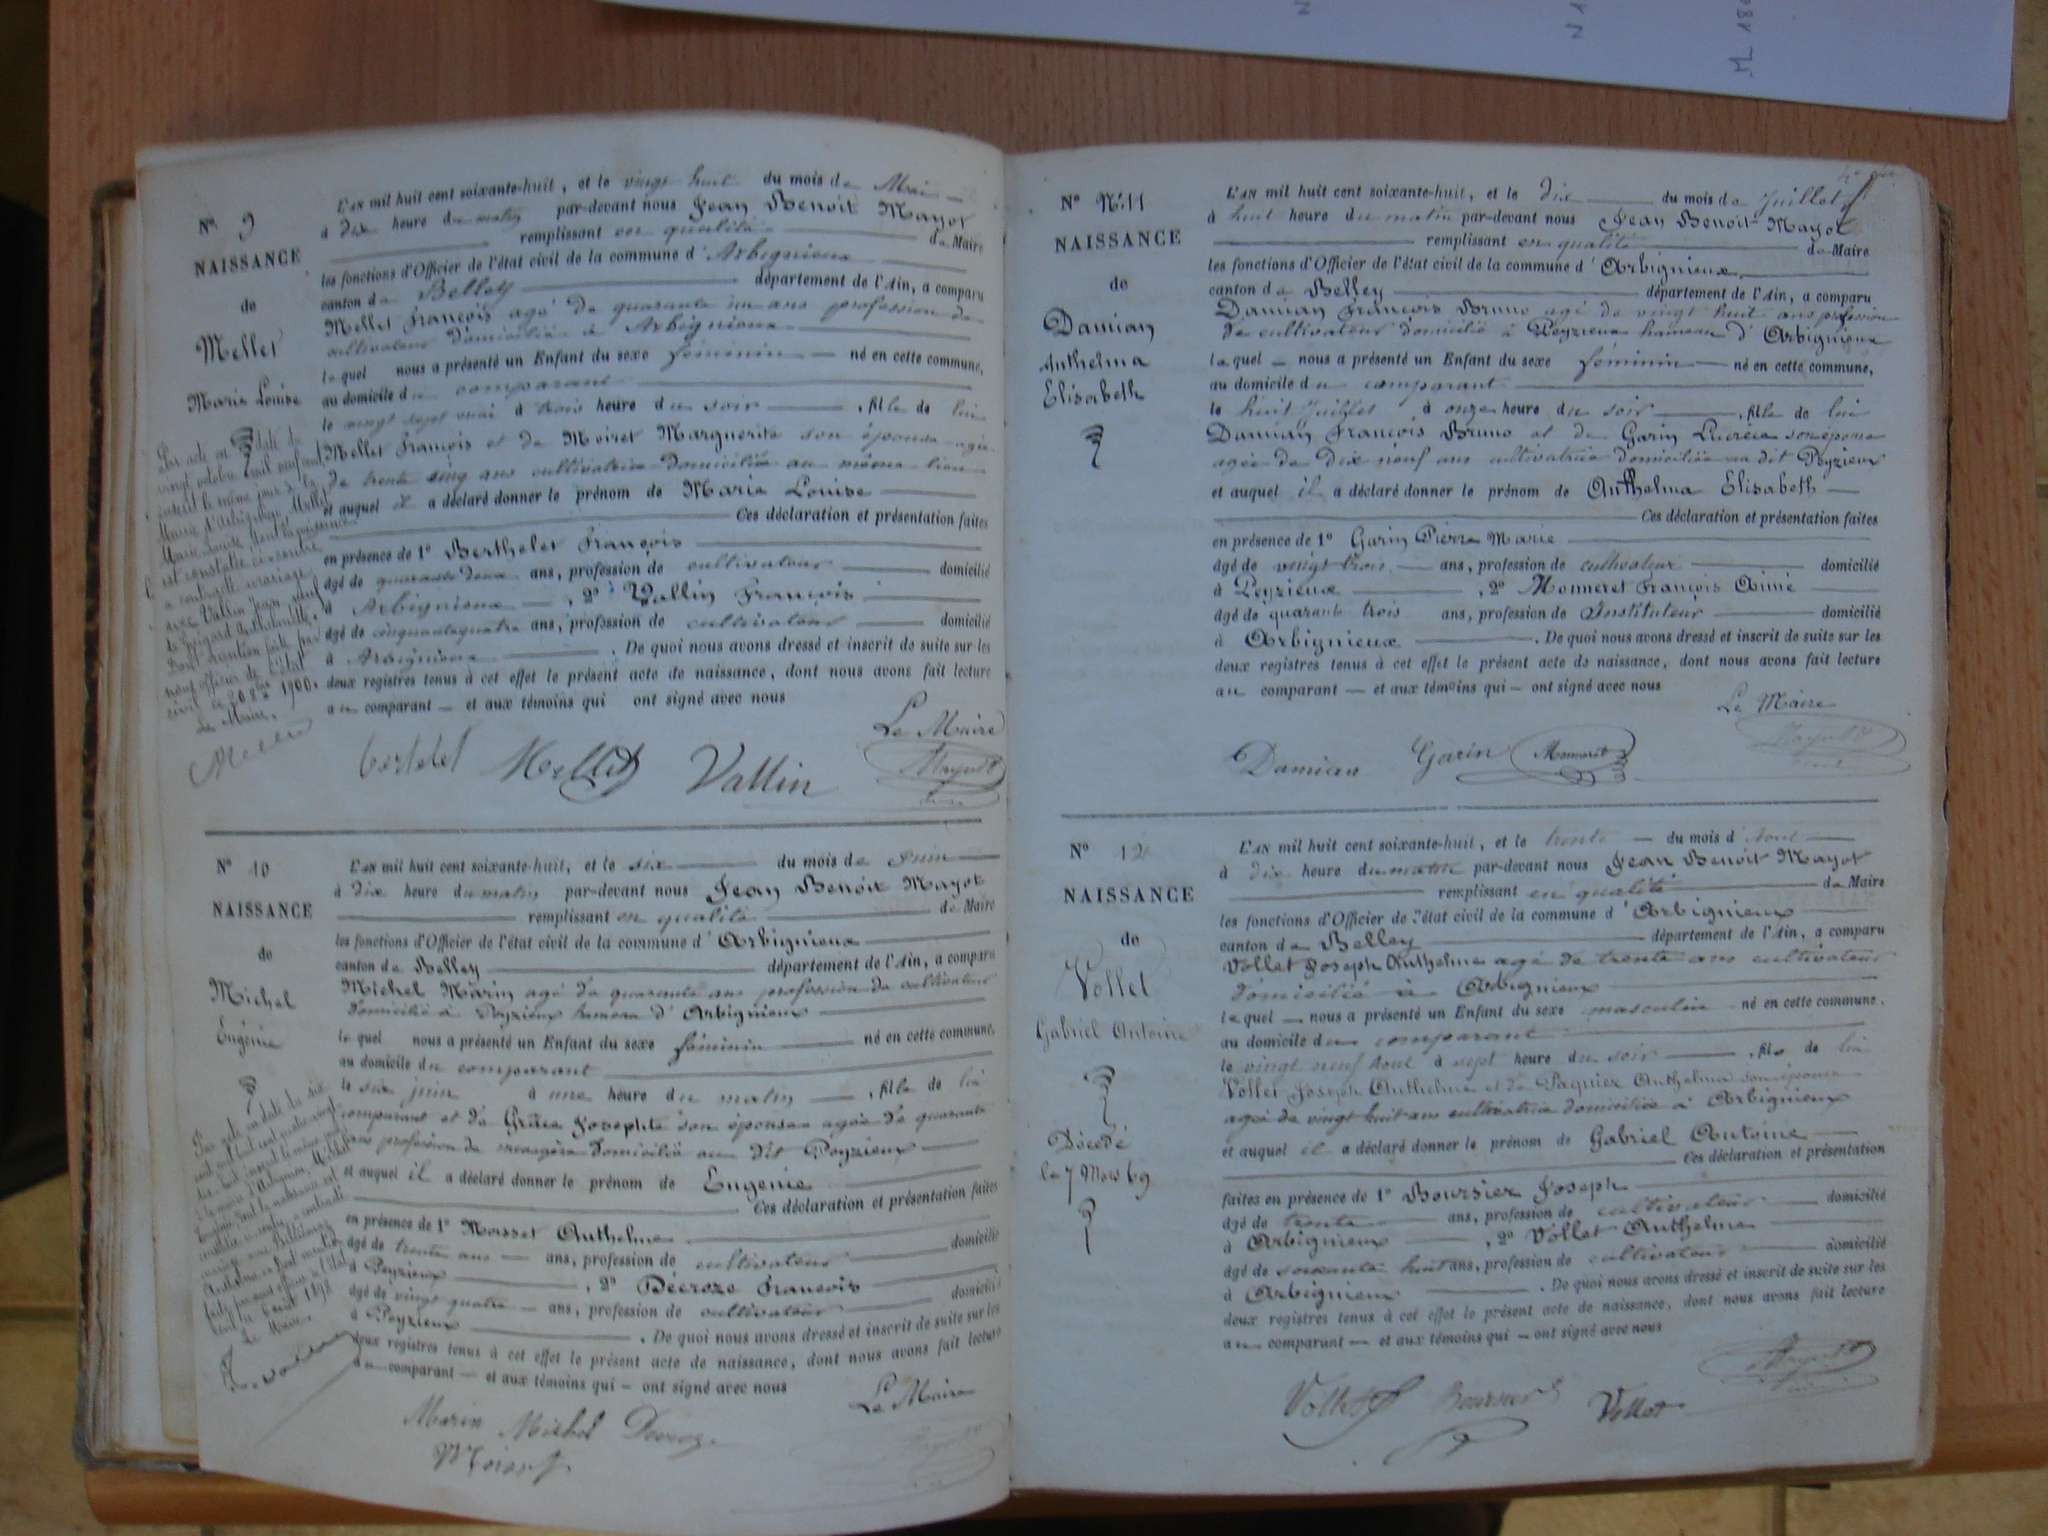 N° 9
NAISSANCE
de
Mellet
Marie Louise
L'AN mil huit cent soixante-huit, et le vingt huit du mois de Mai
à dix heure du matin par-devant nous Jean Benoit Mayot
remplissant en qualité de Maire
les fonctions d'Officier de l'état civil de la commune d'Arbignieux
canton de Belley département de l'Ain, a comparu
Mellet François agé de quarante un ans profession de
cultivateur domicilié à Arbignieux
lequel nous a présenté un Enfant du sexe féminin né en cette commune,
au domicile du comparant
le vingt sept mai à trois heure du soir, fille de lui
Mellet François et de Moiret Marguerite son épouse agée
de trente cinq ans cultivatrice domiciliée au même lieu
et auquel il a déclaré donner le prénom de Marie Louise
Ces déclaration et présentation faites
en présence de 1° Berthelet François
âgé de quarante deux ans, profession de cultivateur domicilié
à Arbignieux, 2° Vallin François
âgé de cinquantequatre ans, profession de cultivateur domicilié
à Arbignieux. De quoi nous avons dressé et inscrit de suite sur les
deux registres tenus à cet effet le présent acte de naissance, dont nous avons fait lecture
au comparant et aux témoins qui ont signé avec nous
Le Maire
Mellet Vallin
Par acte en date du
vingt octobre mil neuf cent
inscrit le même jour de la
Mairie d'Arbignieux Mellet
Marie Louise dont la naissance
est constatée ci-contre
a contracté mariage
avec Vallin Jean
Dont mention faite par
nous officier de l'état
civil ce 20 8bre 1900.
Le Maire,
N° 10
NAISSANCE
de
Michel
Eugénie
L'AN mil huit cent soixante-huit, et le six du mois de Juin
à dix heure du matin par-devant nous Jean Benoit Mayot
remplissant en qualité de Maire
les fonctions d'Officier de l'état civil de la commune d'Arbignieux
canton de Belley département de l'Ain, a comparu
Michel Marin agé de quarante ans profession de cultivateur
domicilié à Peyzieux hameau d'Arbignieux
lequel nous a présenté un Enfant du sexe féminin né en cette commune,
au domicile du comparant
le six juin à une heure du matin, fille de lui
comparant et de Josephte son épouse agée de quarante
ans profession de ménagère domiciliée au dit Peyzieux
et auquel il a déclaré donner le prénom de Eugénie
Ces déclaration et présentation faites
en présence de 1° Anthelme
âgé de trente ans ans, profession de cultivateur domicilié
à Peyzieux, 2° Décroze François
âgé de vingt quatre ans, profession de cultivateur domicilié
à Peyzieux. De quoi nous avons dressé et inscrit de suite sur les
deux registres tenus à cet effet le présent acte de naissance, dont nous avons fait lecture
au comparant et aux témoins qui ont signé avec nous
Le Maire
Marin Michel
Par acte en date du six
Le Maire,
N° N:11
NAISSANCE
de
Damian
Anthelma
Elisabeth
L'AN mil huit cent soixante-huit, et le dix du mois de Juillet
à huit heure du matin par-devant nous Jean Benoit Mayot
remplissant en qualité de Maire
les fonctions d'Officier de l'état civil de la commune d'Arbignieux
canton de Belley département de l'Ain, a comparu
Damian François Bruno agé de vingt huit ans profession
de cultivateur domicilié à Peyzieux hameau d'Arbignieux
lequel nous a présenté un Enfant du sexe féminin né en cette commune,
au domicile du comparant
le huit Juillet à onze heure du soir, fille de lui
Damian François Bruno et de Garin Lucrèce son épouse
agée de dix neuf ans cultivatrice domiciliée au dit Peyzieux
et auquel il a déclaré donner le prénom de Anthelma Elisabeth
Ces déclaration et présentation faites
en présence de 1° Garin Pierre Marie
âgé de vingt trois ans, profession de cultivateur domicilié
à Peyzieux, 2° Monneret François Aimé
âgé de quarante trois ans, profession de Instituteur domicilié
à Arbignieux. De quoi nous avons dressé et inscrit de suite sur les
deux registres tenus à cet effet le présent acte de naissance, dont nous avons fait lecture
au comparant et aux témoins qui ont signé avec nous
Le Maire
Damian Garin Monneret
N° 12
NAISSANCE
de
Vollet
Gabriel Antoine
Décédé
le 7 Mars 69
L'AN mil huit cent soixante-huit, et le trente du mois d'Aout
à dix heure du matin par-devant nous Jean Benoit Mayot
remplissant en qualité de Maire
les fonctions d'Officier de l'état civil de la commune d'Arbignieux
canton de Belley département de l'Ain, a comparu
Vollet Joseph Anthelme agé de trente ans cultivateur
domicilié à Arbignieux
lequel nous a présenté un Enfant du sexe masculin né en cette commune.
au domicile du comparant
le vingt neuf Aout à sept heure du soir, fils de lui
Vollet Joseph Anthelme et de Paquier Anthelma son épouse
agée de vingt huit ans cultivatrice domiciliée à Arbignieux
et auquel il a déclaré donner le prénom de Gabriel Antoine
Ces déclaration et présentation
faites en présence de 1° Boursier Joseph
âgé de trente ans, profession de cultivateur domicilié
à Arbignieux, 2° Vollet Anthelme
âgé de soixante huit ans, profession de cultivateur domicilié
à Arbignieux. De quoi nous avons dressé et inscrit de suite sur les
deux registres tenus à cet effet le présent acte de naissance, dont nous avons fait lecture
au comparant et aux témoins qui ont signé avec nous
Vollet Boursier Vollet